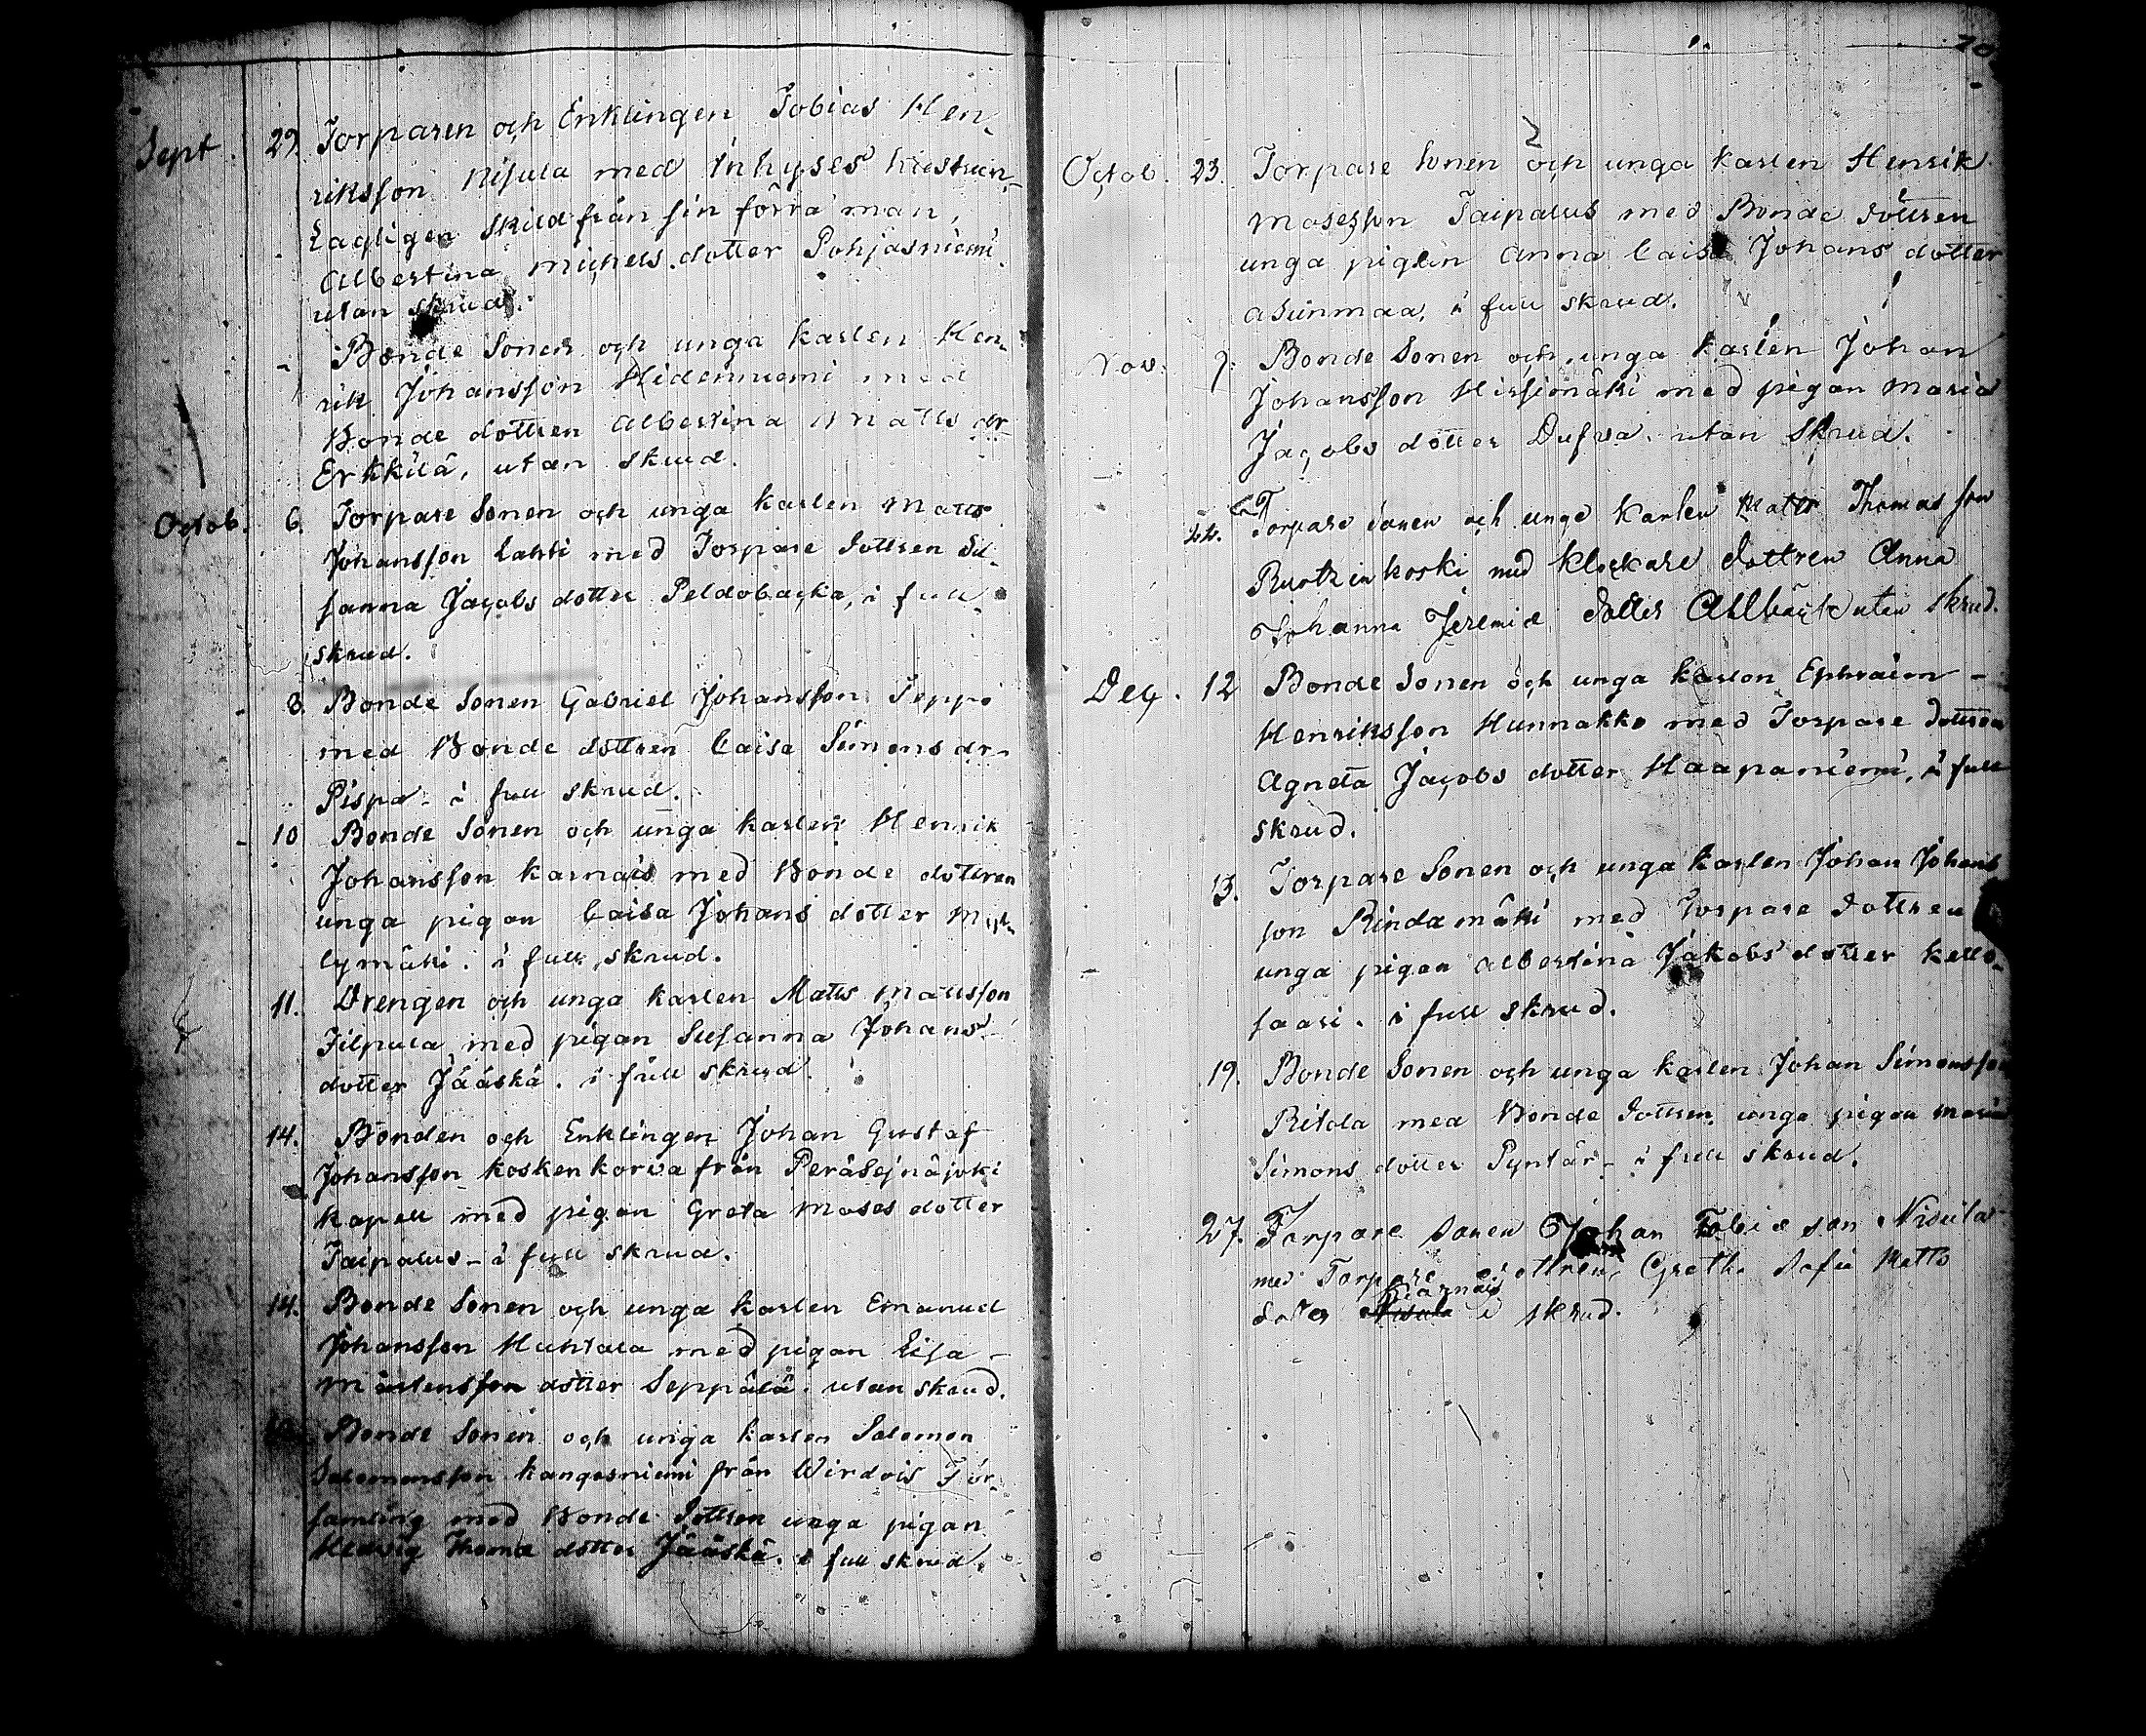 Sept. 29. Torparen och Enklingen Tobias Hen-
riksson Nisula med Inhyses hustrun,
Lagligen skild från sin förra man,
Albertina Michels dotter Pohjasniemi.
utan skrud.
- Bonde Sonen och unga karlen Hen-
rik Johansson Hidenniemi med
Bonde dottren Albertina Matts dr
Erkkilä, utan skrud.
Octob. 6. Torpare Sonen och unga karlen Matts
Johansson Lahti med Torpare dottren Su-
sanna Jacobs dotter Peldobacka, i full
skrud.
- 8. Bonde Sonen Gabriel Johansson Seppi
med Bonde dottren Caisa Simons dr-
Pispa - i full skrud.
- 10 Bonde Sonen och unga karlen Henrik
Johansson Karnais med Bonde dottren
unga pigan Caisa Johans dotter
lymäki. i full skrud.
11. Drengen och unga karlen Matts Mattsson
Filpula med pigan Susanna Johans
dotter Jääskä. i full skrud.
14. Bonden och Enklingen Johan Gustaf
Johansson Koskenkorva från Peräsejnäjoki
kapell med pigan Greta Moses dotter
Taipalus - i full skrud.
14. Bonde Sonen och unga karlen Emanuel
Johansson Huhtala med pigan Lisa -
Mårtensson dotter Seppälä. utan skrud.
Bonde Sonen och unga karlen Salomon
Salomonsson Kangasniemi från Wirdois För-
samling med Bonde dottren unga pigan
Hedvig Thomæ dotter Jääskä. i full skrud.
Octob. 23. Torpare Sonen och unga karlen Henrik
Mosesson Taipalus med Bonde dottren
unga pigan Anna Caisa Johans dotter
Asunmaa, i full skrud.
Nov. 7. Bonde Sonen och unga karlen Johan
Johansson Hirsimäki med pigan Maria
Jacobs dotter Dufva. utan skrud.
22. Torpare sonen och unge karlen Matts Thomas son
Ruotzinkoski med klockare dottren Anna
Johanna Jeremiæ dotter Ahlbäck utan skrud.
Dec. 12 Bonde Sonen och unga karlen Ephraim -
Henriksson Hunnakko med Torpare dottren
Agneta Jacobs dotter Haapaniemi, i full
skrud.
13. Torpare Sonen och unga karlen Johan Johans
son Rindamäki med Torpare dottren
unga pigan Albertina Jakobs dotter Kello-
saari. i full skrud.
19. Bonde Sonen och unga karlen Johan Simonsson
Ritola med Bonde dottren unga pigan Maria
Simons dotter Pyntär - i full skrud.
27. Torpare sonen Johan Tobias son Nisula
med Torpare dottren Greth. Sofia Matts
Karnais
dotter Nisula i skrud.